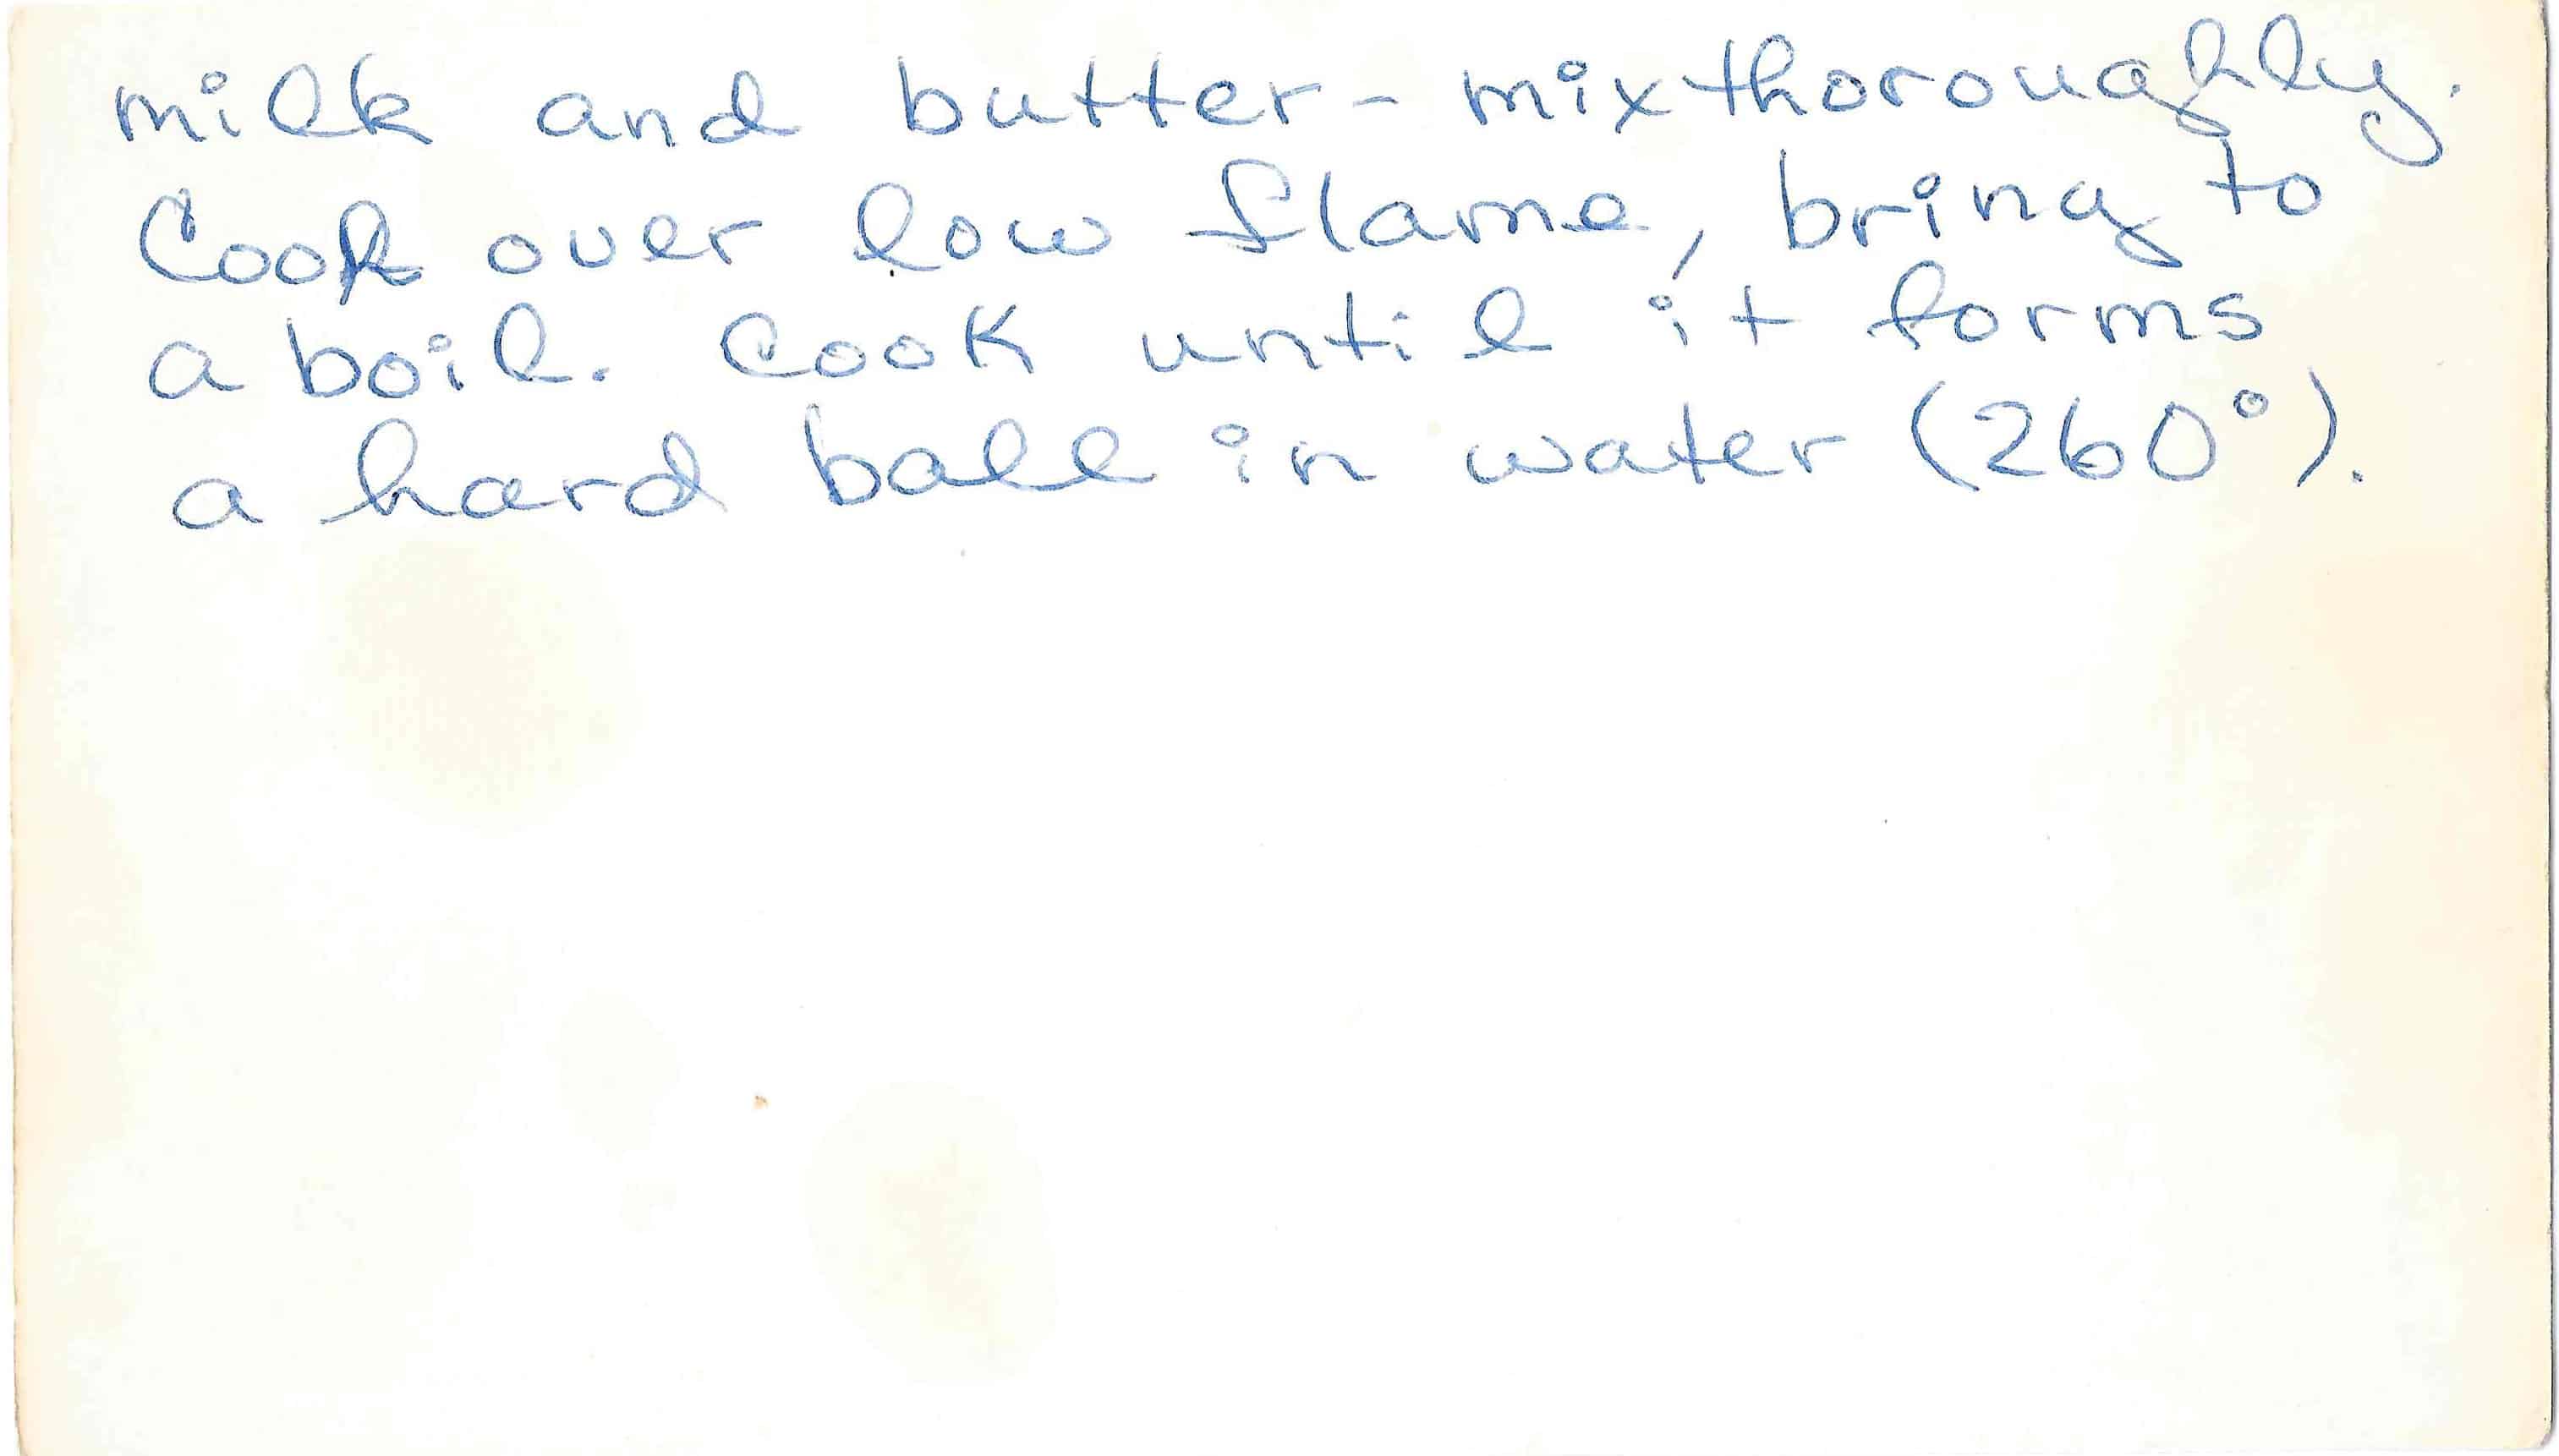 milk and butter - mix thoroughly.
Cook over low flame, bring to
a boil. Cook until it forms
a hard ball in water (260°).